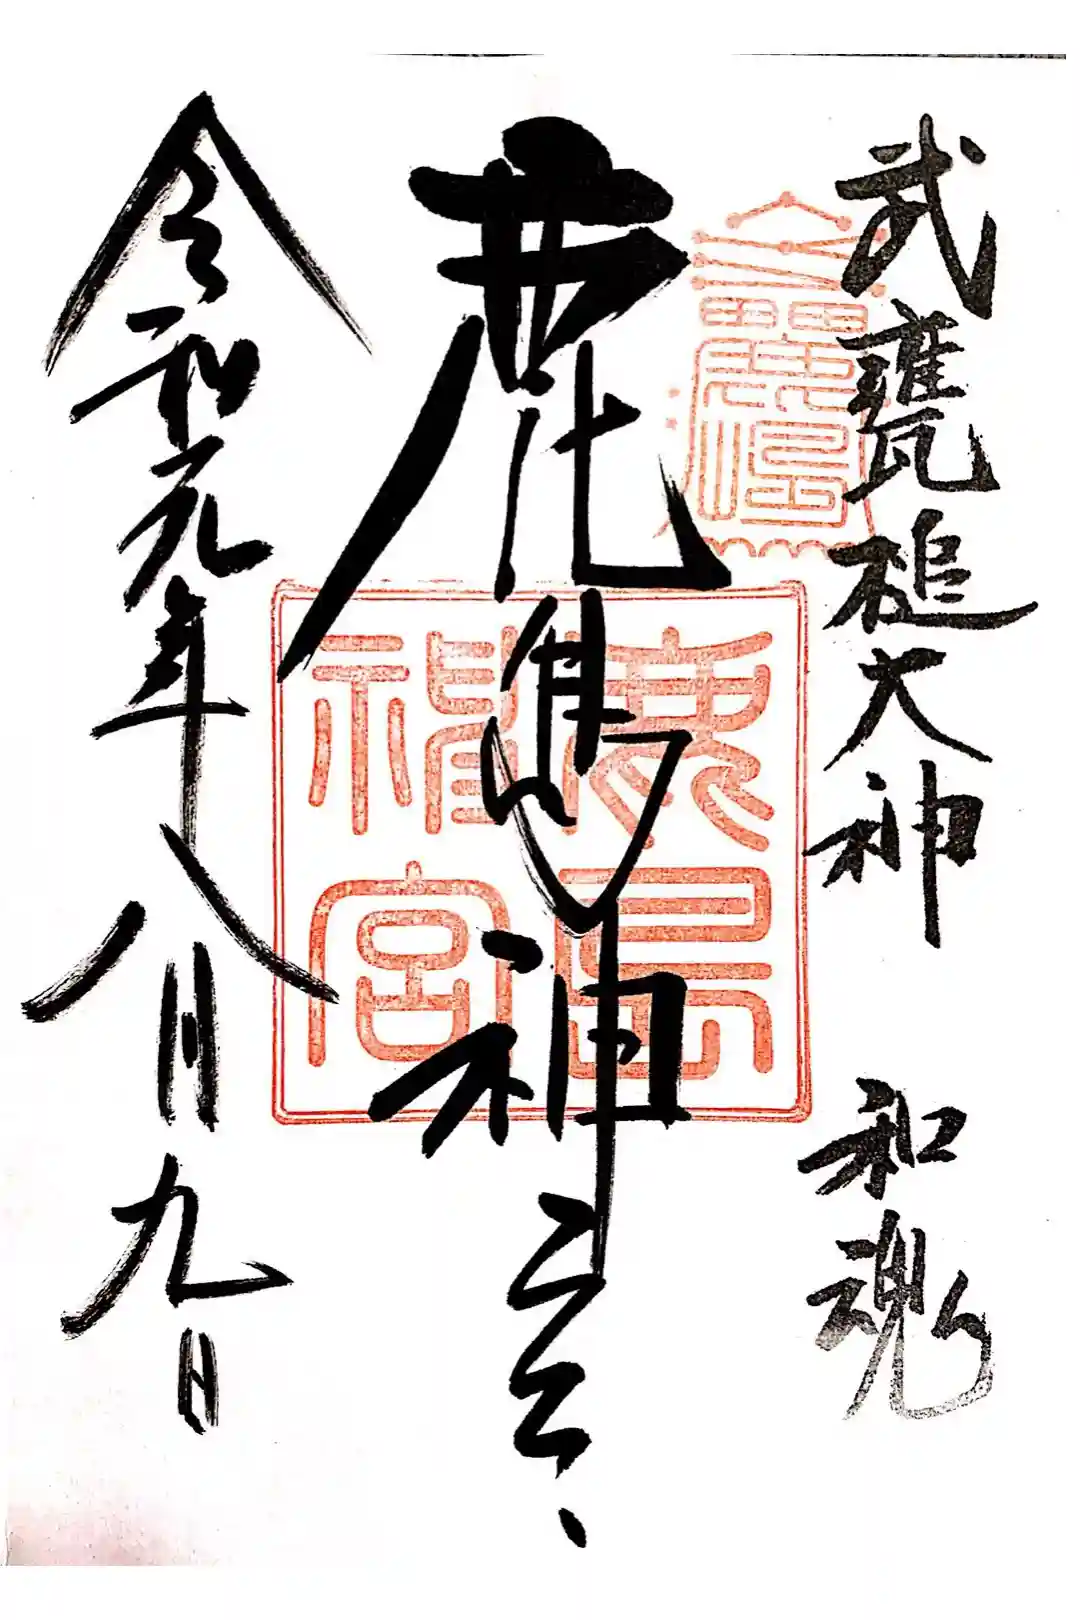 武甕槌大神　和魂
鹿島神宮
令和元年八月九日
鹿島
神宮